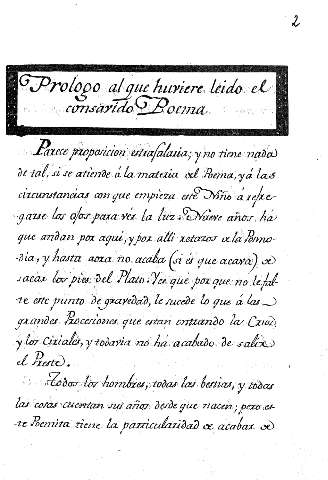 2
Prologo al que huviere leido el
consavido Poema
Parece proposicion estrafalaria; y no tiene nada
de tal, si se atiende á la materia del Poema, y á las
circunstancias con que empieza este Niño á refre-
garse los ojos para vér la luz. Nueve años há
que andan por aqui, y por alli retazos de la Pómo-
dia, y hasta aora no acaba (si és que acava) de
sacar los pies del Plato. Yes que por que no le fal-
te este punto de gravedad, le sucede lo que á las
grandes Procesiones, que estan entrando la Cruz,
y los Ciriales, y todavia no há acabado de salir
el Preste.
Todos los hombres, todas las bestias, y todas
las cosas cuentan sus años desde que nacen; pero es-
te Poemita tiene la particularidad de acabar de